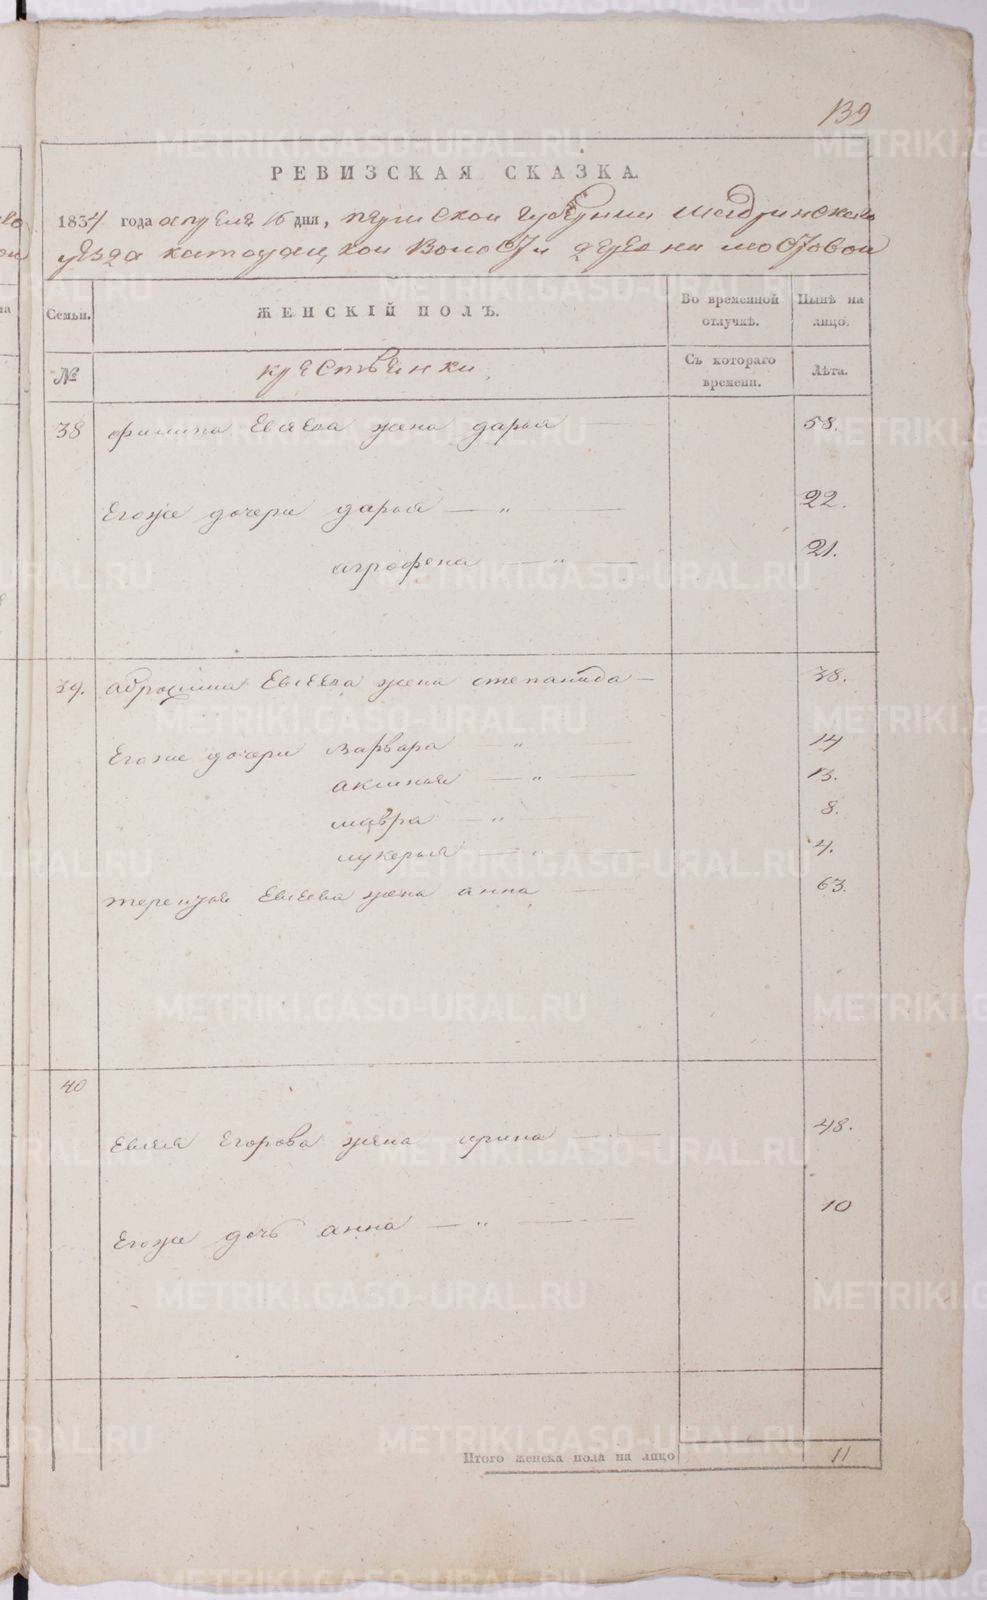 139
РЕВИЗСКАЯ СКАЗКА.
1834 года апреля 16 дня, пермской губернии Шадринскаго
уезда катайской Волости деревни мостовой
Семьи. ЖЕНСКІЙ ПОЛЪ. Во временной отлучкѣ. Нынѣ на лицо.
№ крестьянки Съ котораго времени. Лѣта.
38 филипа Евсеева жена дарья 58.
Егоже дочери дарья — „ — 22.
агрофена — „ — 21.
39. абросима Евсеева жена степанида — 38.
Егоже дочери варвара — „ — 14
аксинья — „ — 13.
мавра — „ — 8.
лукерья — „ — 4.
терентья Евсеева жена анна — 63.
40
Егорова жена ирина — 48.
Егоже дочь анна — „ — 10
Итого женска пола на лицо 11
METRIKI.GASO-URAL.RU